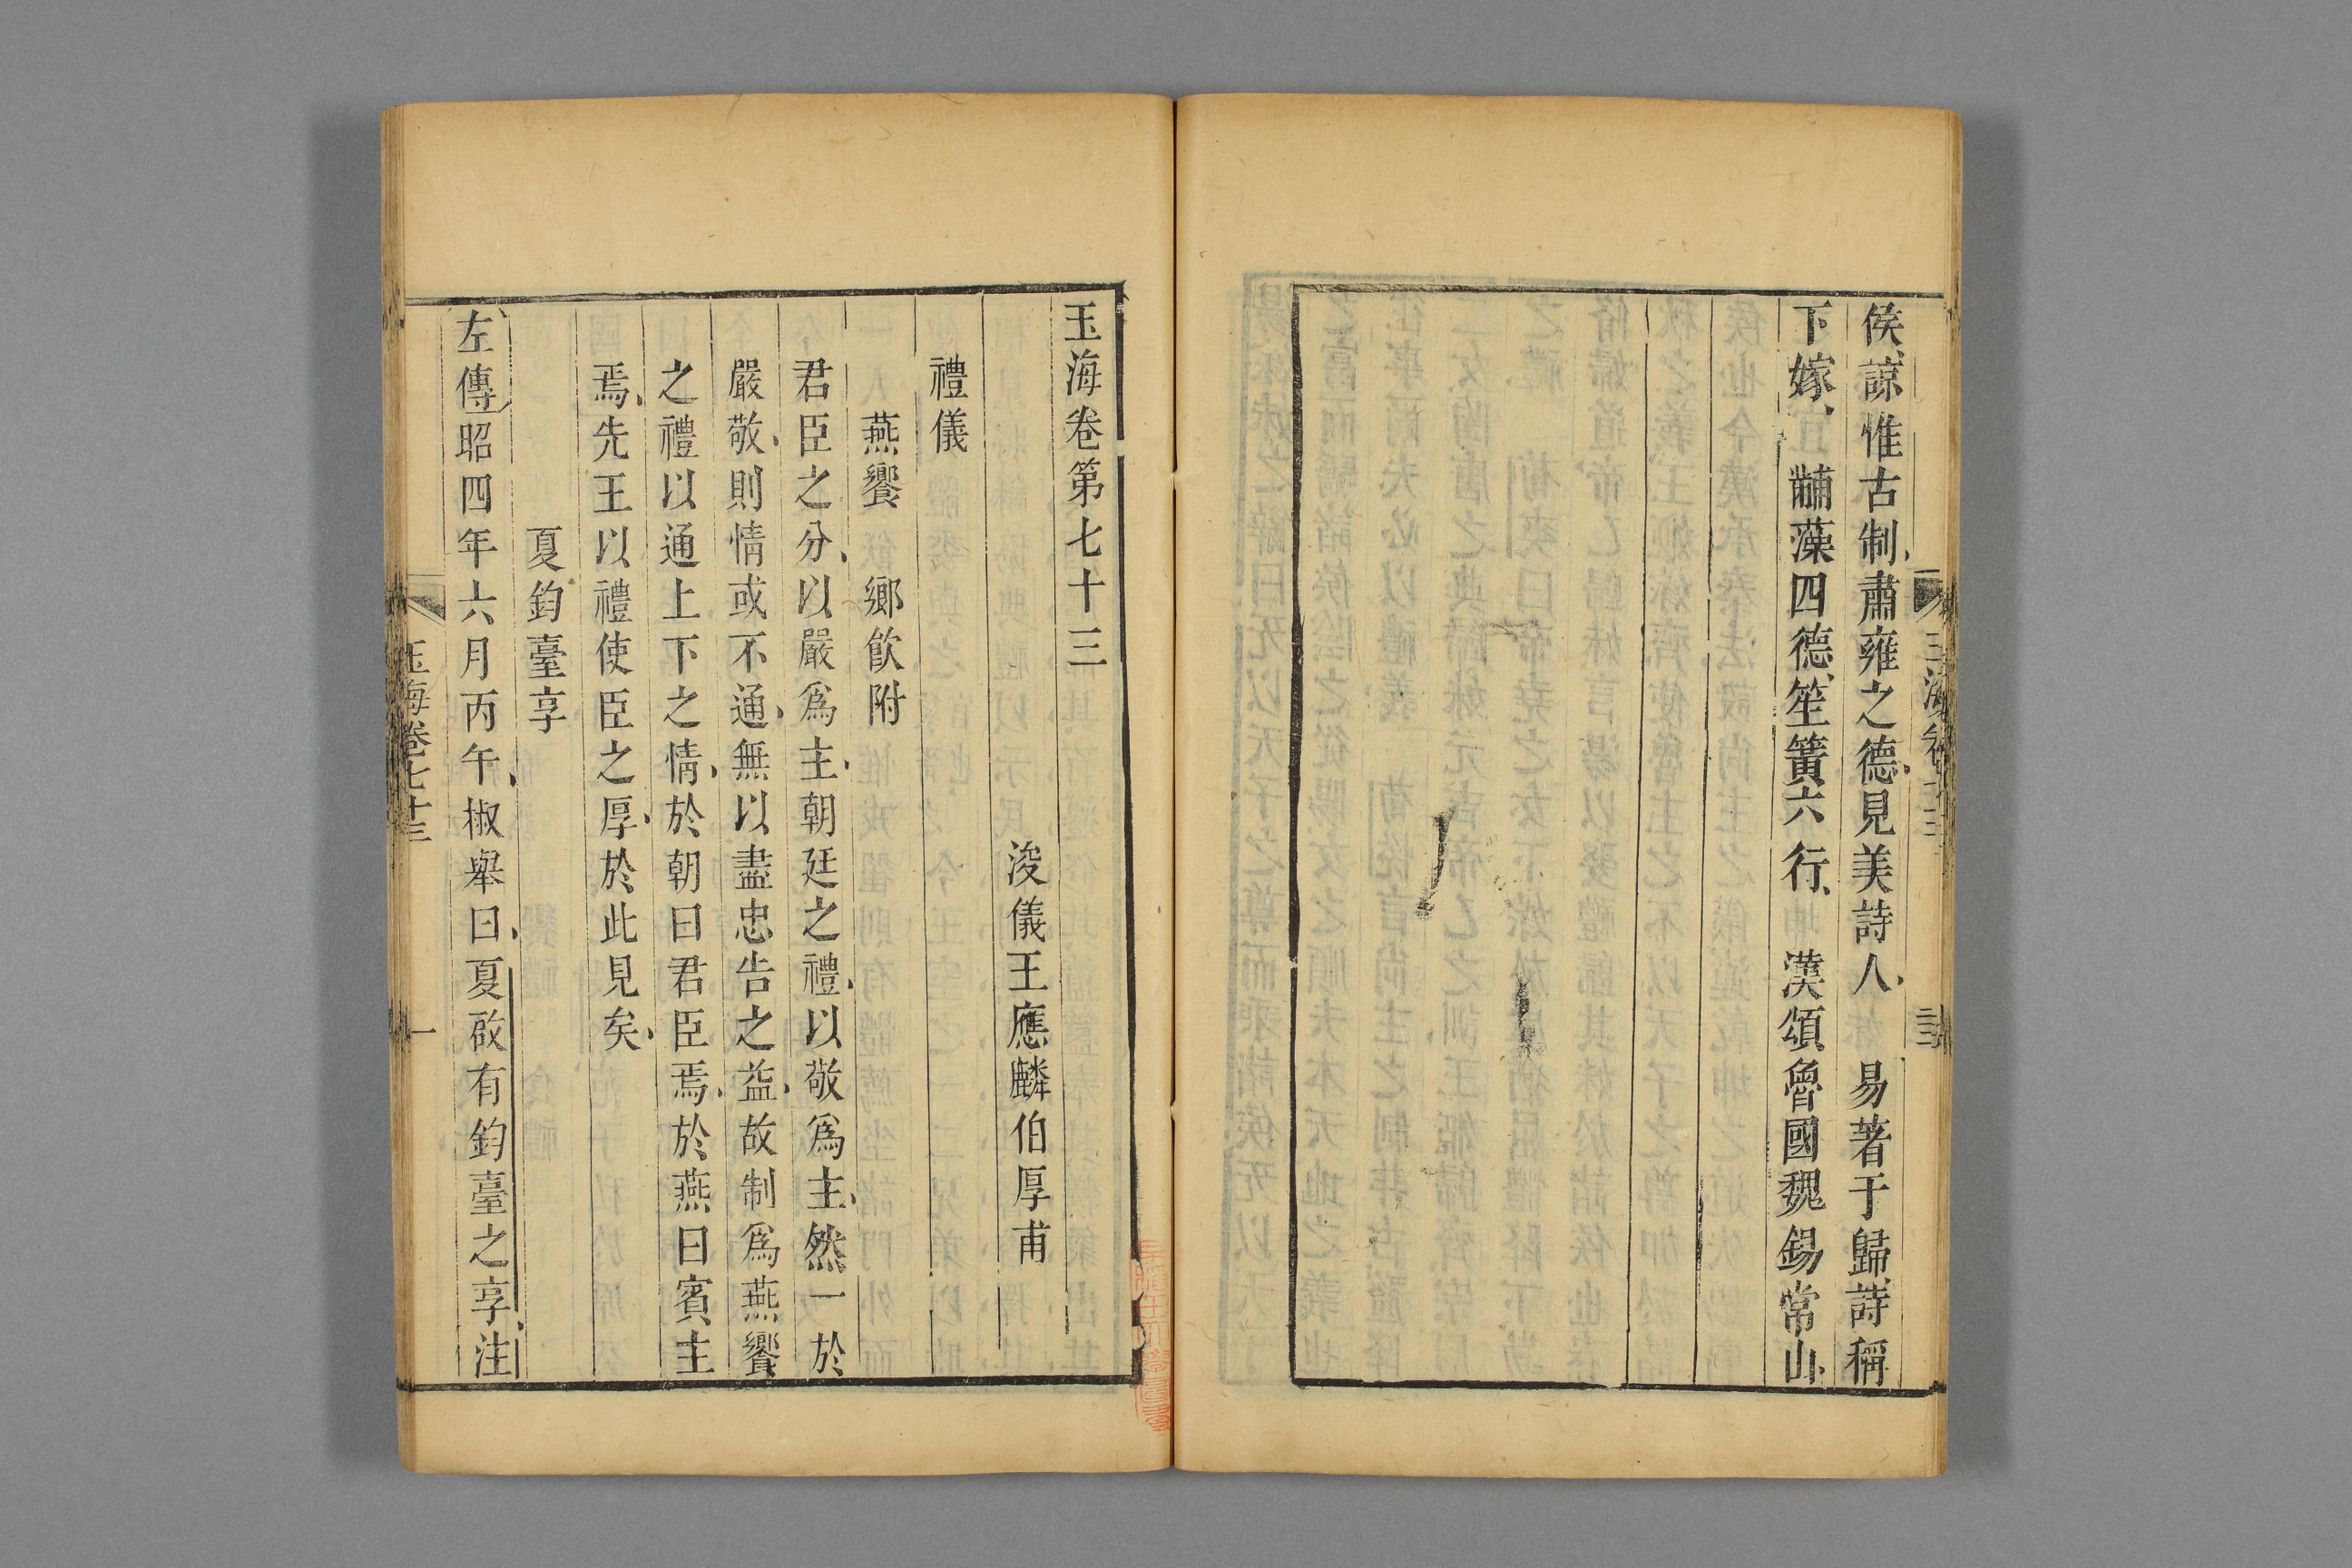 侯諒惟古制肅雍之德見美詩人　易著于歸詩稱
下嫁　黼藻四德笙簧六行　漢頌魯國魏錫常山
玉海卷第七十三
浚儀王應麟伯厚甫
禮儀
燕饗　鄉飲附
君臣之分以嚴爲主朝廷之禮以敬爲主然一於
嚴敬則情或不通無以盡忠告之益故制爲燕饗
之禮以通上下之情於朝曰君臣焉於燕曰賓主
焉先王以禮使臣之厚於此見矣
夏鈞臺享
左傳昭四年六月丙午椒舉曰夏啟有鈞臺之享注
玉海卷七十三
一